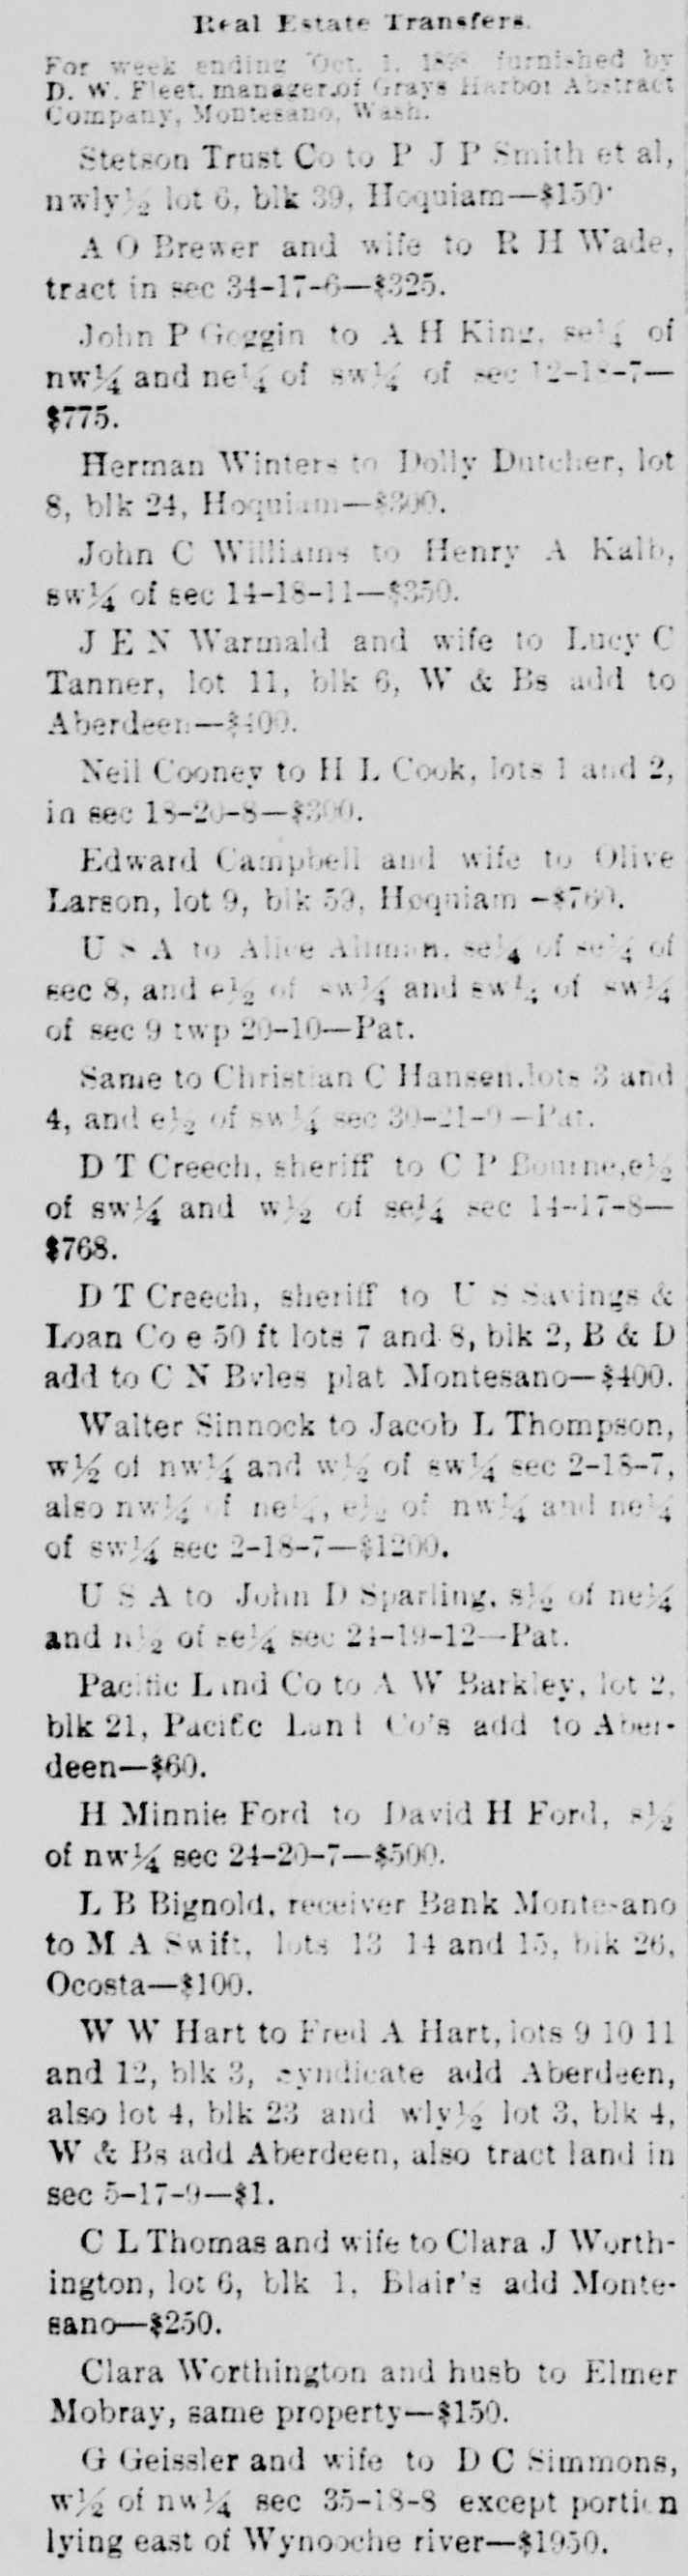 Real Estate Transfers.
For week ending Oct. 1, 1898 furnished by
D. W. Fleet, manager of Grays Harbor Abstract
Company, Montesano, Wash.
Stetson Trust Co to P J P Smith et al,
nwly½ lot 6, blk 39, Hoquiam—$150·
A O Brewer and wife to R H Wade,
tract in sec 34-17-6—$325.
John P Goggin to A H King, se¼ of
nw¼ and ne¼ of sw¼ of sec 12-18-7—
$775.
Herman Winters to Dolly Dutcher, lot
8, blk 24, Hoquiam—$300.
John C Williams to Henry A Kalb,
sw¼ of sec 14-18-11—$350.
J E N Warmald and wife to Lucy C
Tanner, lot 11, blk 6, W & Bs add to
Aberdeen—$400.
Neil Cooney to H L Cook, lots 1 and 2,
in sec 18-20-8—$300.
Edward Campbell and wife to Olive
Larson, lot 9, blk 59, Hoquiam —$760.
U S A to Alice Allman, se¼ of se¼ of
sec 8, and e½ of sw¼ and sw¼ of sw¼
of sec 9 twp 20-10—Pat.
Same to Christian C Hansen,lots 3 and
4, and e½ of sw¼ sec 30-21-9—Pat.
D T Creech, sheriff to C P Bourne,e½
of sw¼ and w½ of se¼ sec 14-17-8—
$768.
D T Creech, sheriff to U S Savings &
Loan Co e 50 ft lots 7 and 8, blk 2, B & D
add to C N Byles plat Montesano—$400.
Walter Sinnock to Jacob L Thompson,
w½ of nw¼ and w½ of sw¼ sec 2-18-7,
also nw¼ of ne¼, e½ of nw¼ and ne¼
of sw¼ sec 2-18-7—$1200.
U S A to John D Sparling, s½ of ne¼
and n½ of se¼ sec 24-19-12—Pat.
Pacific Land Co to A W Barkley, lot 2,
blk 21, Pacific Land Co's add to Aber-
deen—$60.
H Minnie Ford to David H Ford, s½
of nw¼ sec 24-20-7—$500.
L B Bignold, receiver Bank Montesano
to M A Swift, lots 13 14 and 15, blk 26,
Ocosta—$100.
W W Hart to Fred A Hart, lots 9 10 11
and 12, blk 3, syndicate add Aberdeen,
also lot 4, blk 23 and wly½ lot 3, blk 4,
W & Bs add Aberdeen, also tract land in
sec 5-17-9—$1.
C L Thomas and wife to Clara J Worth-
ington, lot 6, blk 1, Blair's add Monte-
sano—$250.
Clara Worthington and husb to Elmer
Mobray, same property—$150.
G Geissler and wife to D C Simmons,
w½ of nw¼ sec 35-18-8 except portion
lying east of Wynooche river—$1950.